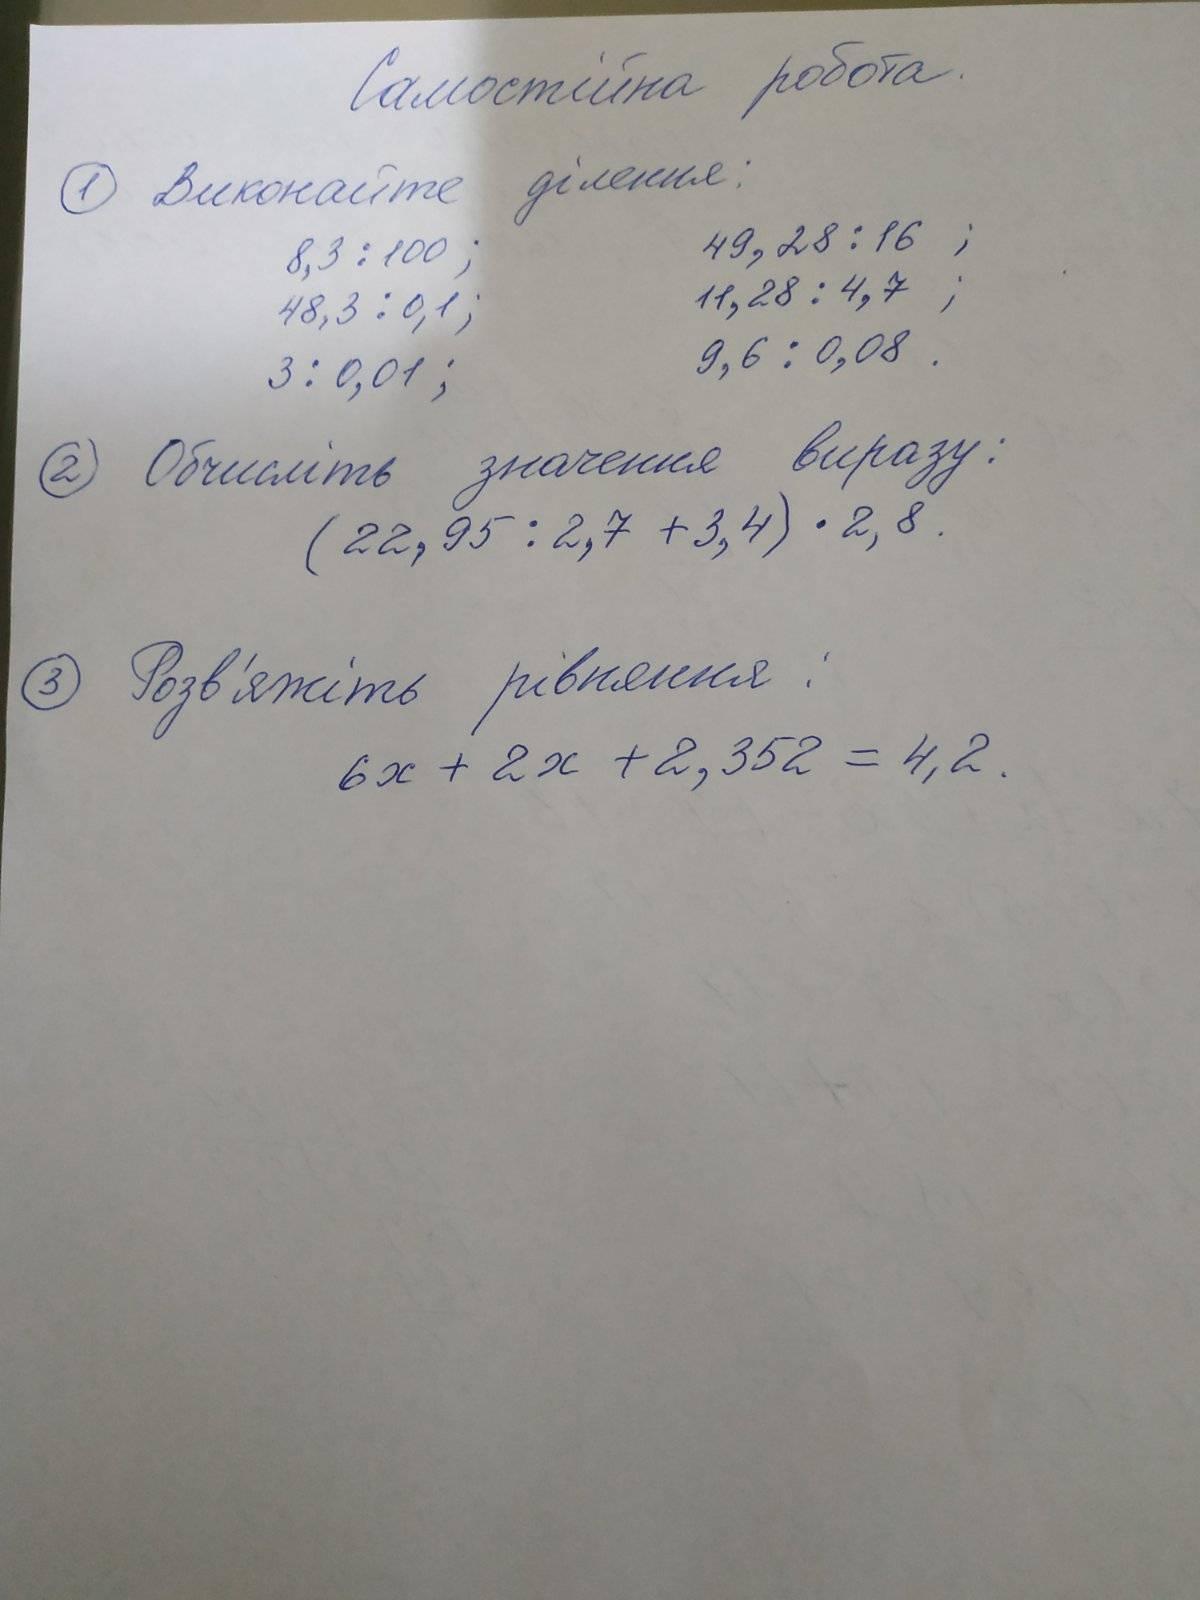 Самостійна робота.
① Виконайте ділення:
8,3 : 100 ; 49,28 : 16 ;
48,3 : 0,1 ; 11,28 : 4,7 ;
3 : 0,01 ; 9,6 : 0,08 .
② Обчисліть значення виразу:
(22,95 : 2,7 + 3,4) · 2,8 .
③ Розв'яжіть рівняння :
6x + 2x + 2,352 = 4,2 .